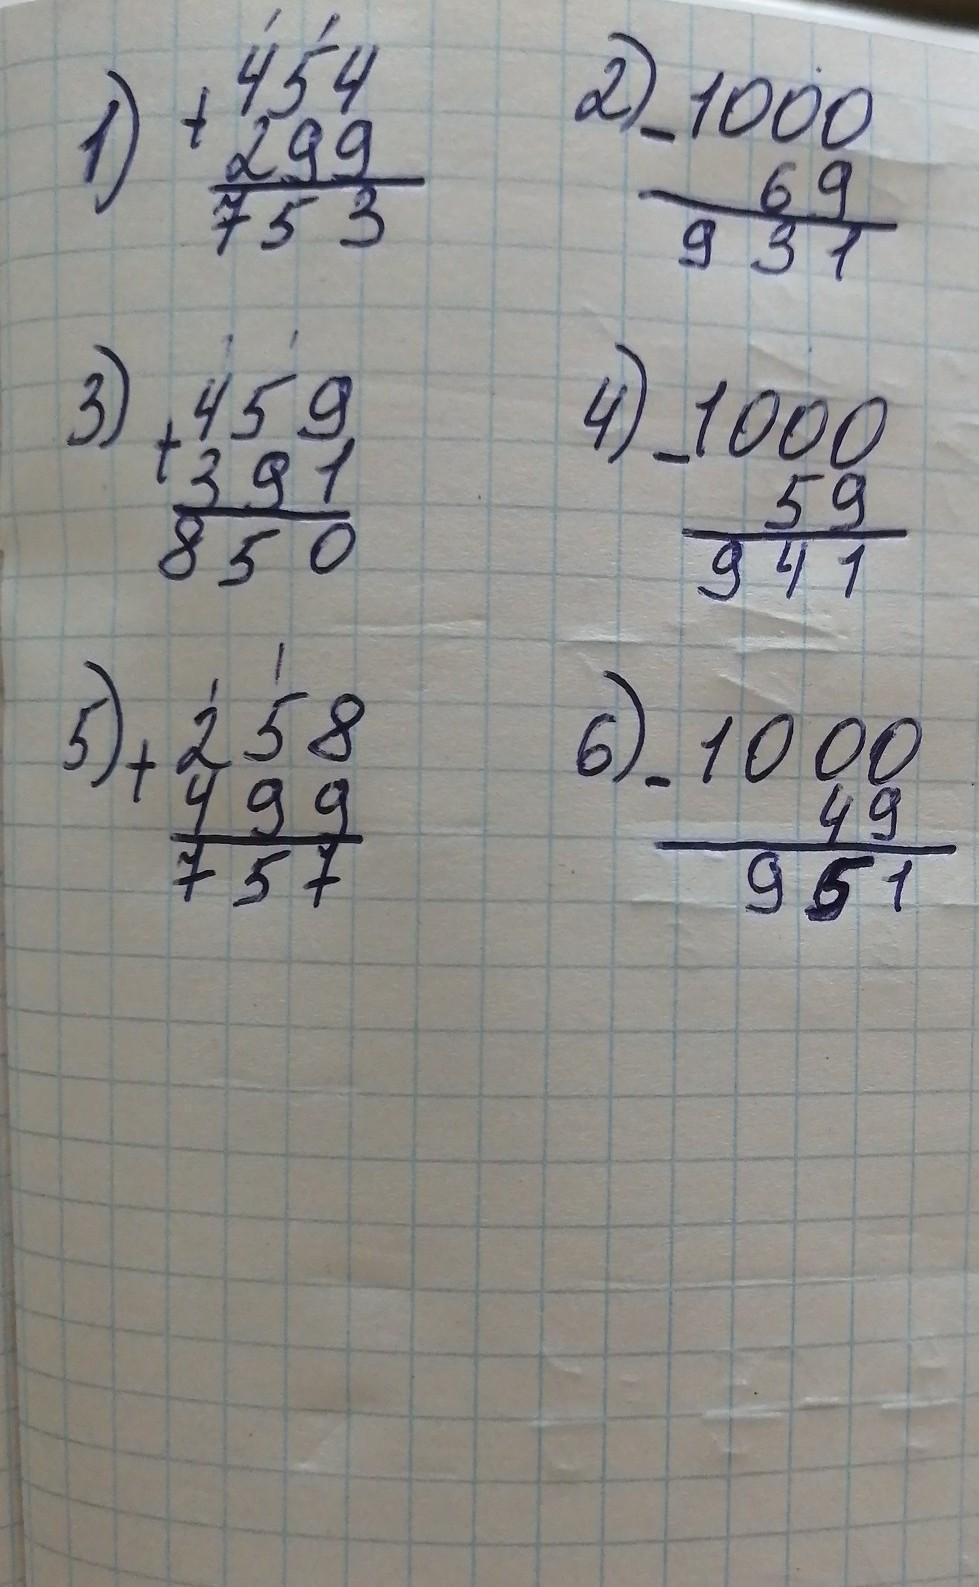 1) + 454
299
753
2) - 1000
69
931
3) + 459
391
850
4) - 1000
59
941
5) + 258
499
757
6) - 1000
49
951